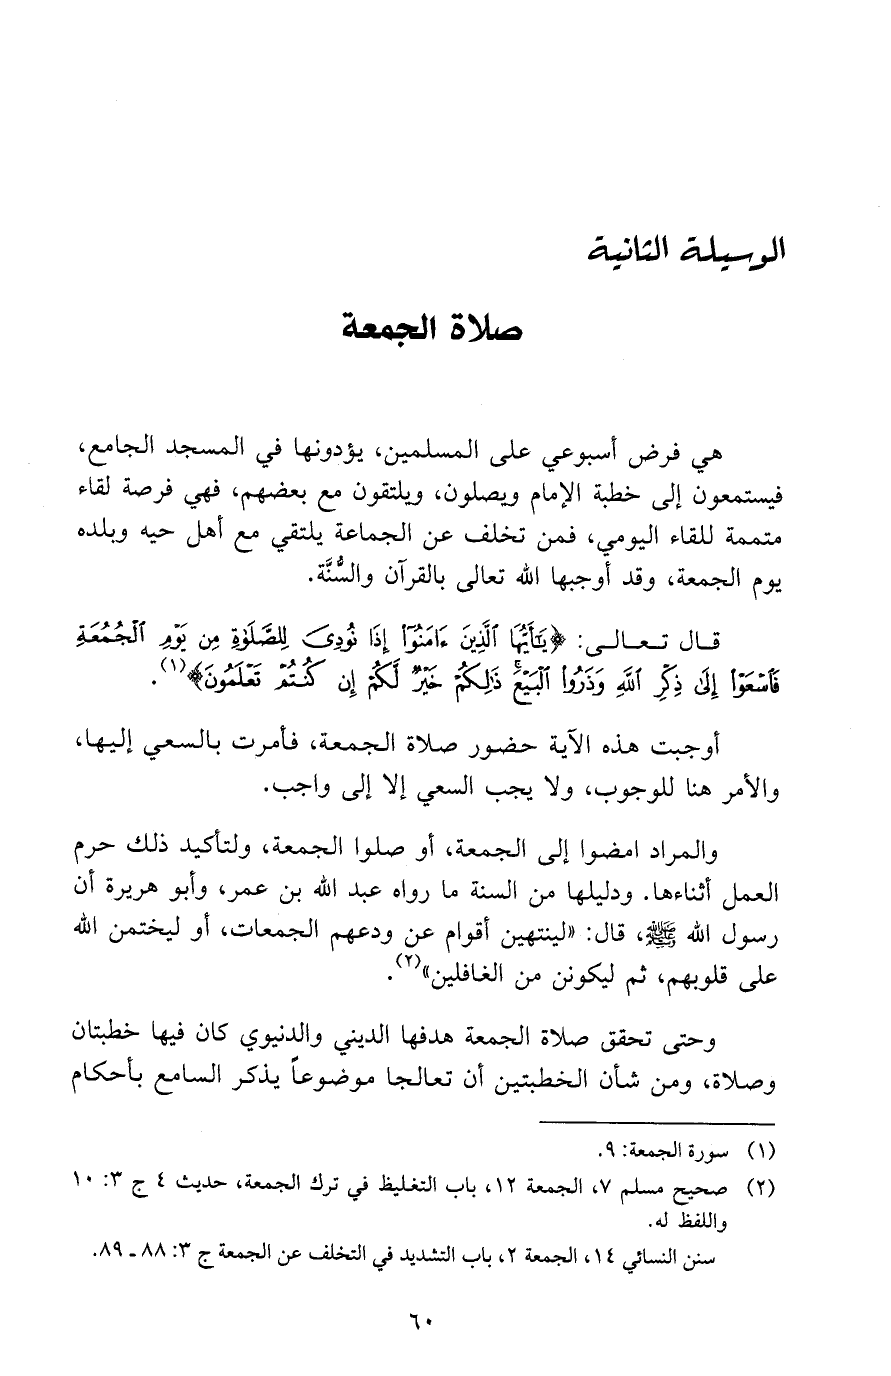 الوسيلة الثانية
صلاة الجمعة
هي فرض أسبوعي على المسلمين، يؤدونها في المسجد الجامع،
فيستمعون إلى خطبة الإمام ويصلون، ويلتقون مع بعضهم، فهي فرصة لقاء
متممة للقاء اليومي، فمن تخلف عن الجماعة يلتقي مع أهل حيه وبلده
يوم الجمعة، وقد أوجبها الله تعالى بالقرآن والسُّنَّة.
قـال تـعـالـى: ﴿يَٰٓأَيُّهَا ٱلَّذِينَ ءَامَنُوٓا۟ إِذَا نُودِىَ لِلصَّلَوٰةِ مِن يَوْمِ ٱلْجُمُعَةِ
فَٱسْعَوْا۟ إِلَىٰ ذِكْرِ ٱللَّهِ وَذَرُوا۟ ٱلْبَيْعَ ۚ ذَٰلِكُمْ خَيْرٌ لَّكُمْ إِن كُنتُمْ تَعْلَمُونَ﴾(١).
أوجبت هذه الآية حضور صلاة الجمعة، فأمرت بالسعي إليها،
والأمر هنا للوجوب، ولا يجب السعي إلا إلى واجب.
والمراد امضوا إلى الجمعة، أو صلوا الجمعة، ولتأكيد ذلك حرم
العمل أثناءها. ودليلها من السنة ما رواه عبد الله بن عمر، وأبو هريرة أن
رسول الله ﷺ، قال: «لينتهين أقوام عن ودعهم الجمعات، أو ليختمن الله
على قلوبهم، ثم ليكونن من الغافلين»(٢).
وحتى تحقق صلاة الجمعة هدفها الديني والدنيوي كان فيها خطبتان
وصلاة، ومن شأن الخطبتين أن تعالجا موضوعاً يذكر السامع بأحكام
(١) سورة الجمعة: ٩.
(٢) صحيح مسلم ٧، الجمعة ١٢، باب التغليظ في ترك الجمعة، حديث ٤ ج ٣: ١٠
واللفظ له.
سنن النسائي ١٤، الجمعة ٢، باب التشديد في التخلف عن الجمعة ج ٣: ٨٨ ـ ٨٩.
٦٠